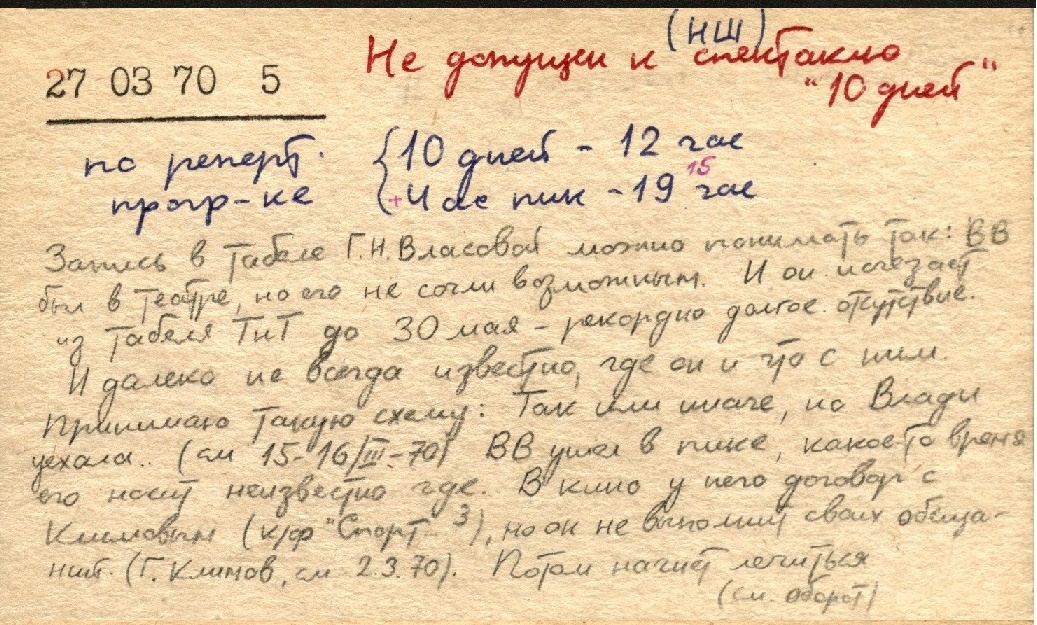 (НШ)
27 03 70 5
Не допущен к спектаклю
"10 дней"
по реперт. {10 дней - 12 час
прогр-ке +Час пик - 19 15 час
Запись в табеле Г.Н. Власовой можно понимать так: ВВ
был в театре, но его не сочли возможным. И он исчезает
из табеля ТнТ до 30 мая - рекордно долгое отсутствие.
И далеко не всегда известно, где он и что с ним.
Принимаю такую схему: Так или иначе, но Влади
уехала.. (см 15-16/III-70) ВВ ушел в пике, какое-то время
его носит неизвестно где. В кино у него договор с
Климовым (к/ф "Спорт-3), но он не выполнит своих обеща-
ний. (Г. Климов, см 2.3.70). Потом начнет лечиться
(см. оборот)